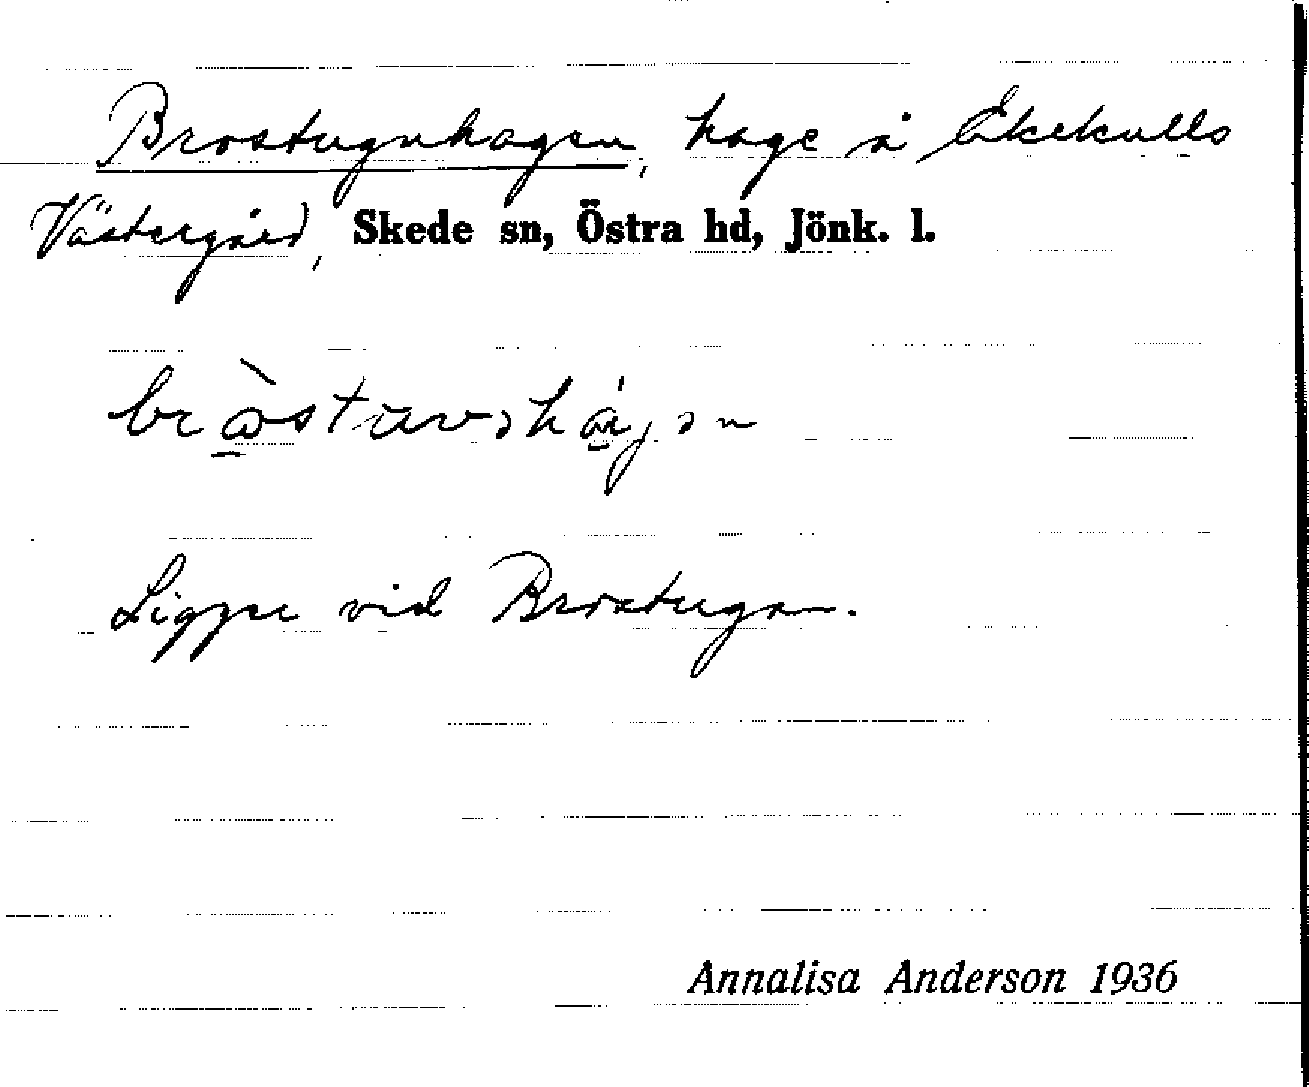 Brostuguhagen, hage å Ekekulls
Västergård, Skede sn, Östra hd, Jönk. l.
Ligger vid Brostugan.
Annalisa Anderson 1936